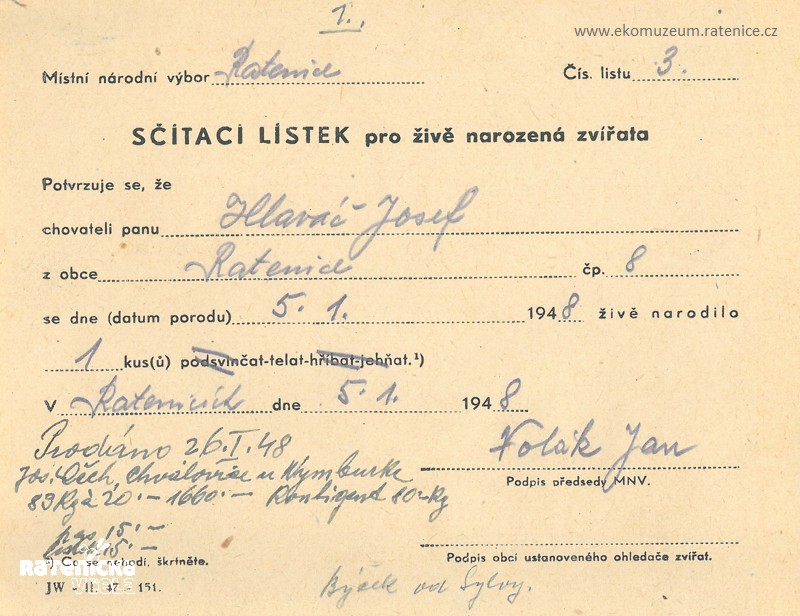 1.
www.ekomuzeum.ratenice.cz
Místní národní výbor Ratenice Čís. listu 3.
SČÍTACÍ LÍSTEK pro živě narozená zvířata
Potvrzuje se, že
chovateli panu Hlaváč Josef
z obce Ratenice čp. 8
se dne (datum porodu) 5. 1. 1948 živě narodilo
1 kus(ů) podsvinčat-telat-hříbat-jehňat.¹)
V Ratenicích dne 5. 1. 1948
Prodáno 26. I. 48
Jos. Čech, Chválovice u Nymburka
83 Kg á 20.- 1660.- Kontigent 80 Kg
Volák Jan
Podpis předsedy MNV.
pas 15.-
lístek 15.-
¹) Co se nehodí, škrtněte.
Podpis obcí ustanoveného ohledače zvířat.
Ratenická
JW - II. 47 - 151.
Býček od Sylvy.